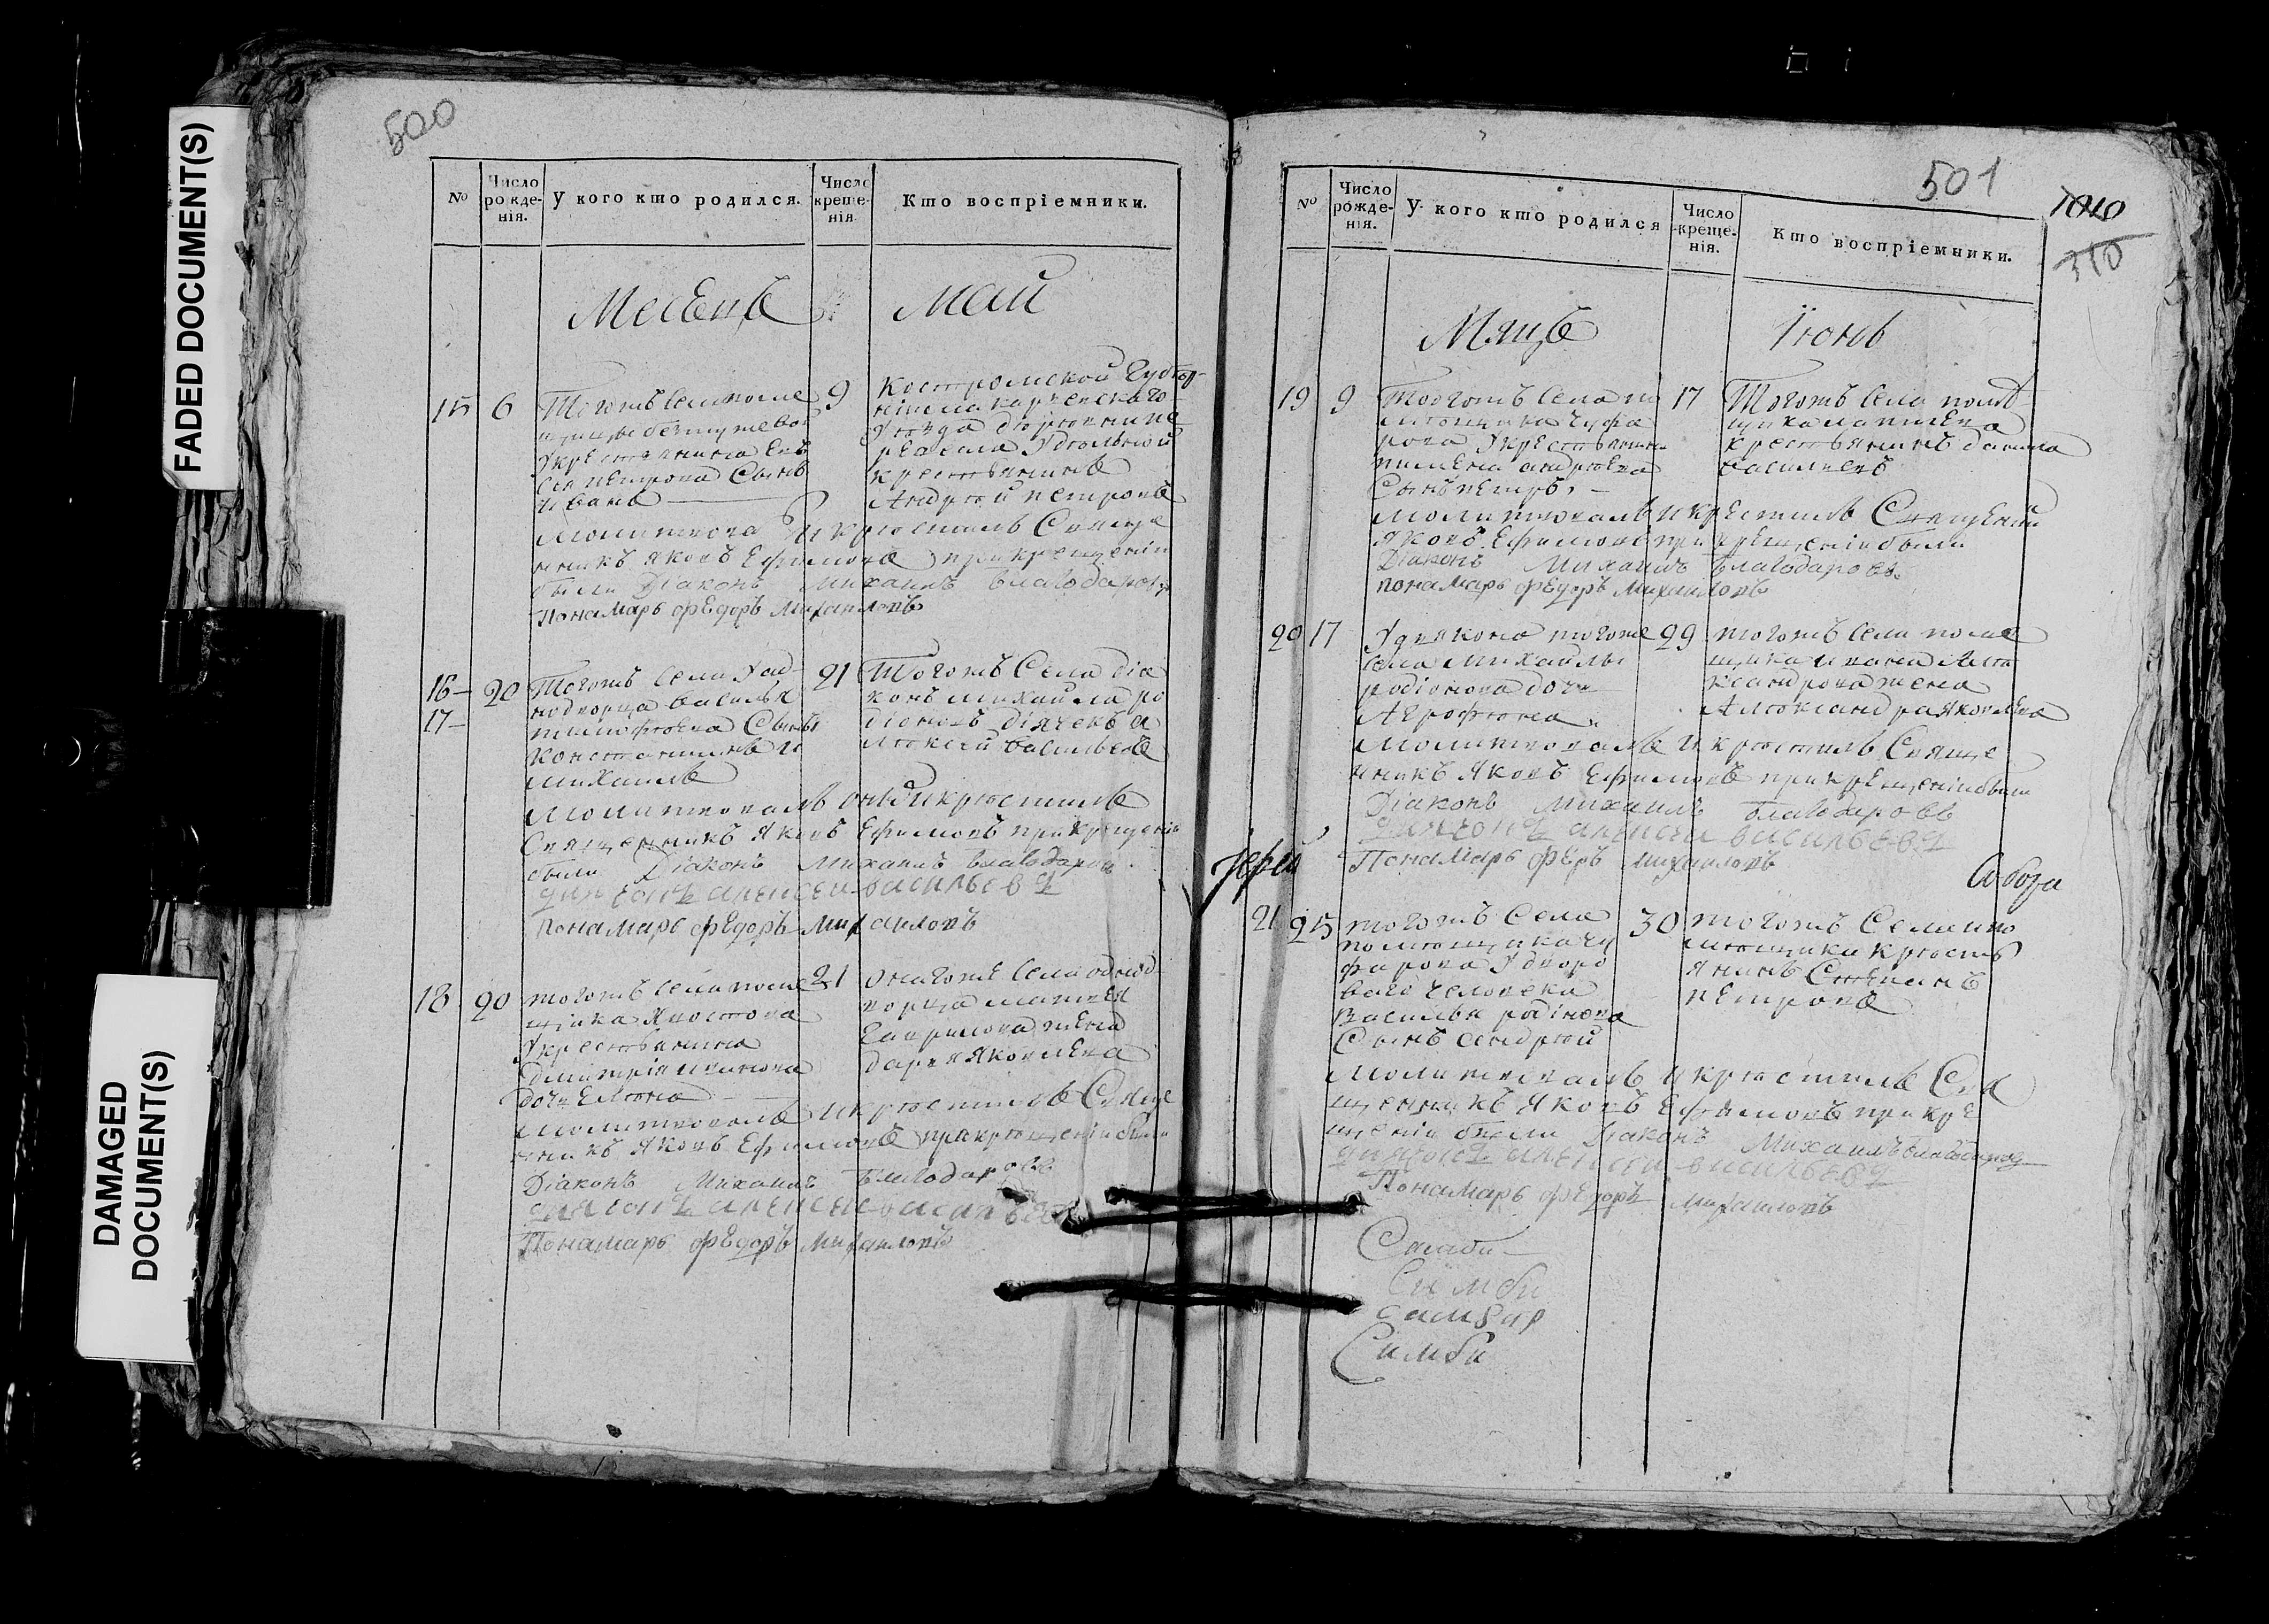 FADED DOCUMENT(S)
DAMAGED
DOCUMENT(S)
500
№
Число рожде-нія.
У кого кто родился.
Число креще-нія
Кто воспріемники.
Месецъ
май
15
6
Тогожъ села поме
щицы
укрестьянина
петрова Сынъ
Иванъ
9
Костромской Губер-
ніи макарьевскаго
уезда
удельной
крестьянинъ
Андрей петровъ
молитвова и крестилъ Свяще
нникъ яковъ Ефимовъ прикрещеніи
были Діаконъ Михаилъ Благодаровъ
Понамарь фЕдоръ Михаиловъ
16-
17-
20
Тогожъ Села уод
нодворца василья
тимофеева Сынъ
Константинъ и
михаилъ
21
Тогожъ Села діа
конъ михайла ро
діоновъ дьячекъ а
лексей васильевъ
молитвовалъ оныхъ икрестилъ
Священникъ Яковъ Ефимовъ прикрещеніи
были Діаконъ Михаилъ Благодаровъ
дьячокъ алексеи васильевъ
понамарь фЕдоръ Михаиловъ
18
20
тогожъ села поме
щика
укрестьянина
дмитрія иванова
дочь Елена
21
онагоже села однод
ворца матвея
гаврилова жена
дарья яковлева
молитвовалъ икрестилъ Свяще
нникъ яковъ Ефимовъ прикрещеніи были
Діаконъ Михаилъ Благодаровъ
дьячокъ алексеи васильевъ
Понамарь фЕдоръ Михаиловъ
501
1010
310
№
Число рожде-нія.
У кого кто родился
Число креще-нія.
Кто воспріемники.
Мяцъ
Іюнь
19
9
Тогожъ Села по
мещика чуфа
рова укрестьянина
пимена андреева
Сынъ петръ
17
Тогожъ Села поме
щика
крестьянинъ данила
васильевъ
молитвовалъ икрестилъ Священни
яковъ Ефимовъ при крещеніи были
Діаконъ Михаилъ Благодаровъ.
понамарь фЕдоръ Михаиловъ
20
17
Удьякона тогоже
села Михайлы
родіонова дочь
Агрофена
29
тогожъ села поме
щика ивана Але
ксандрова жена
Александра яковлева
молитвовалъ и крестилъ Свяще
нникъ яковъ Ефимовъ прикрещеніи были
Діаконъ Михаилъ Благодаровъ
дьячокъ алексеи васильевъ
Понамарь фЕдръ михаиловъ
Іерей
21
25
тогожъ Села
помещика чу
фарова удворо
ваго человека
василья родіонова
Сынъ андрей
30
тогожъ Села по
мещика кресть
янинъ Степанъ
петровъ
молитвовалъ икрестилъ Свя
щенникъ Яковъ Ефимовъ прикре
щеніи были Діаконъ Михаилъ Благодаровъ
дьячокъ алексеи васильевъ
Понамарь фЕдоръ Михаиловъ
Симби
Симби